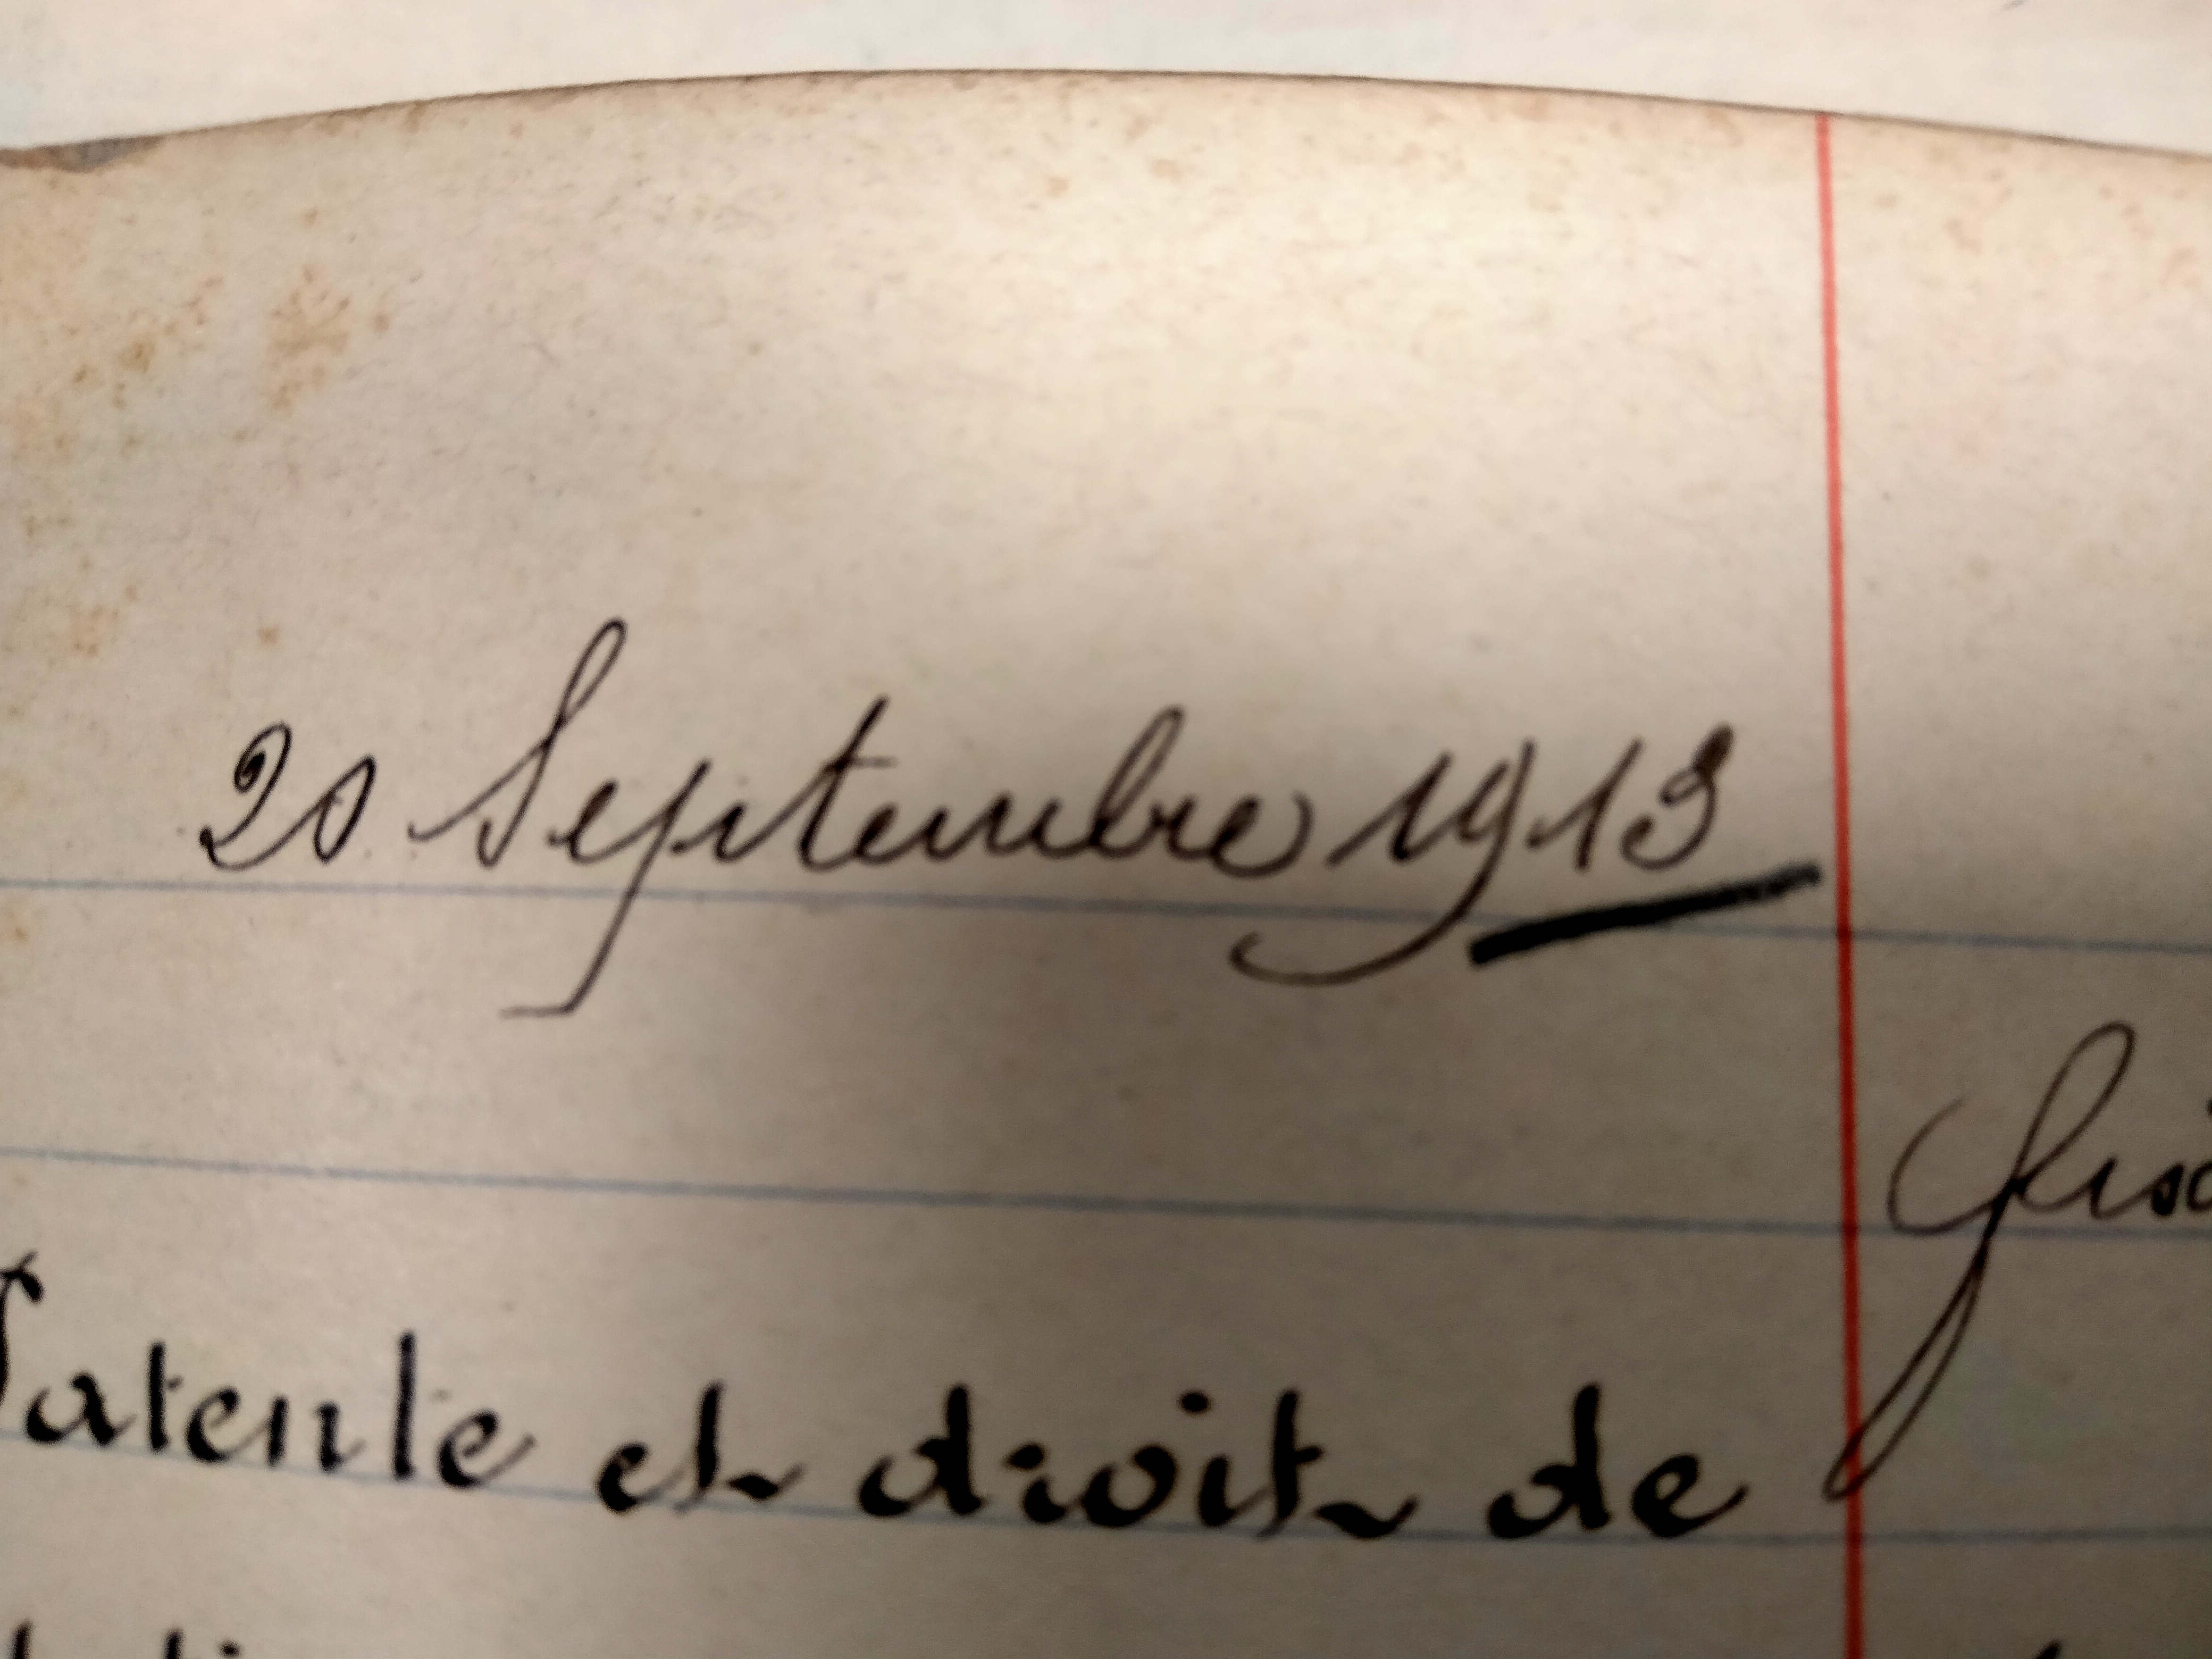 20 Septembre 1913
Patente et droit de